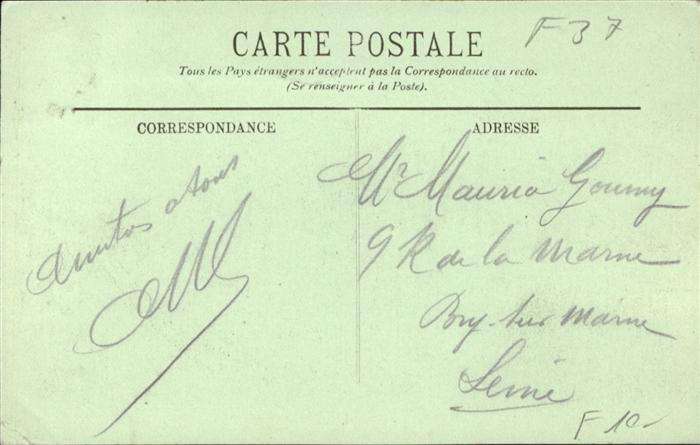 F 37
CARTE POSTALE
Tous les Pays étrangers n'acceptent pas la Correspondance au recto.
(Se renseigner à la Poste).
CORRESPONDANCE
a tous
ADRESSE
Mr
9 R de la Marne
Bry-sur Marne
Seine
F 10-